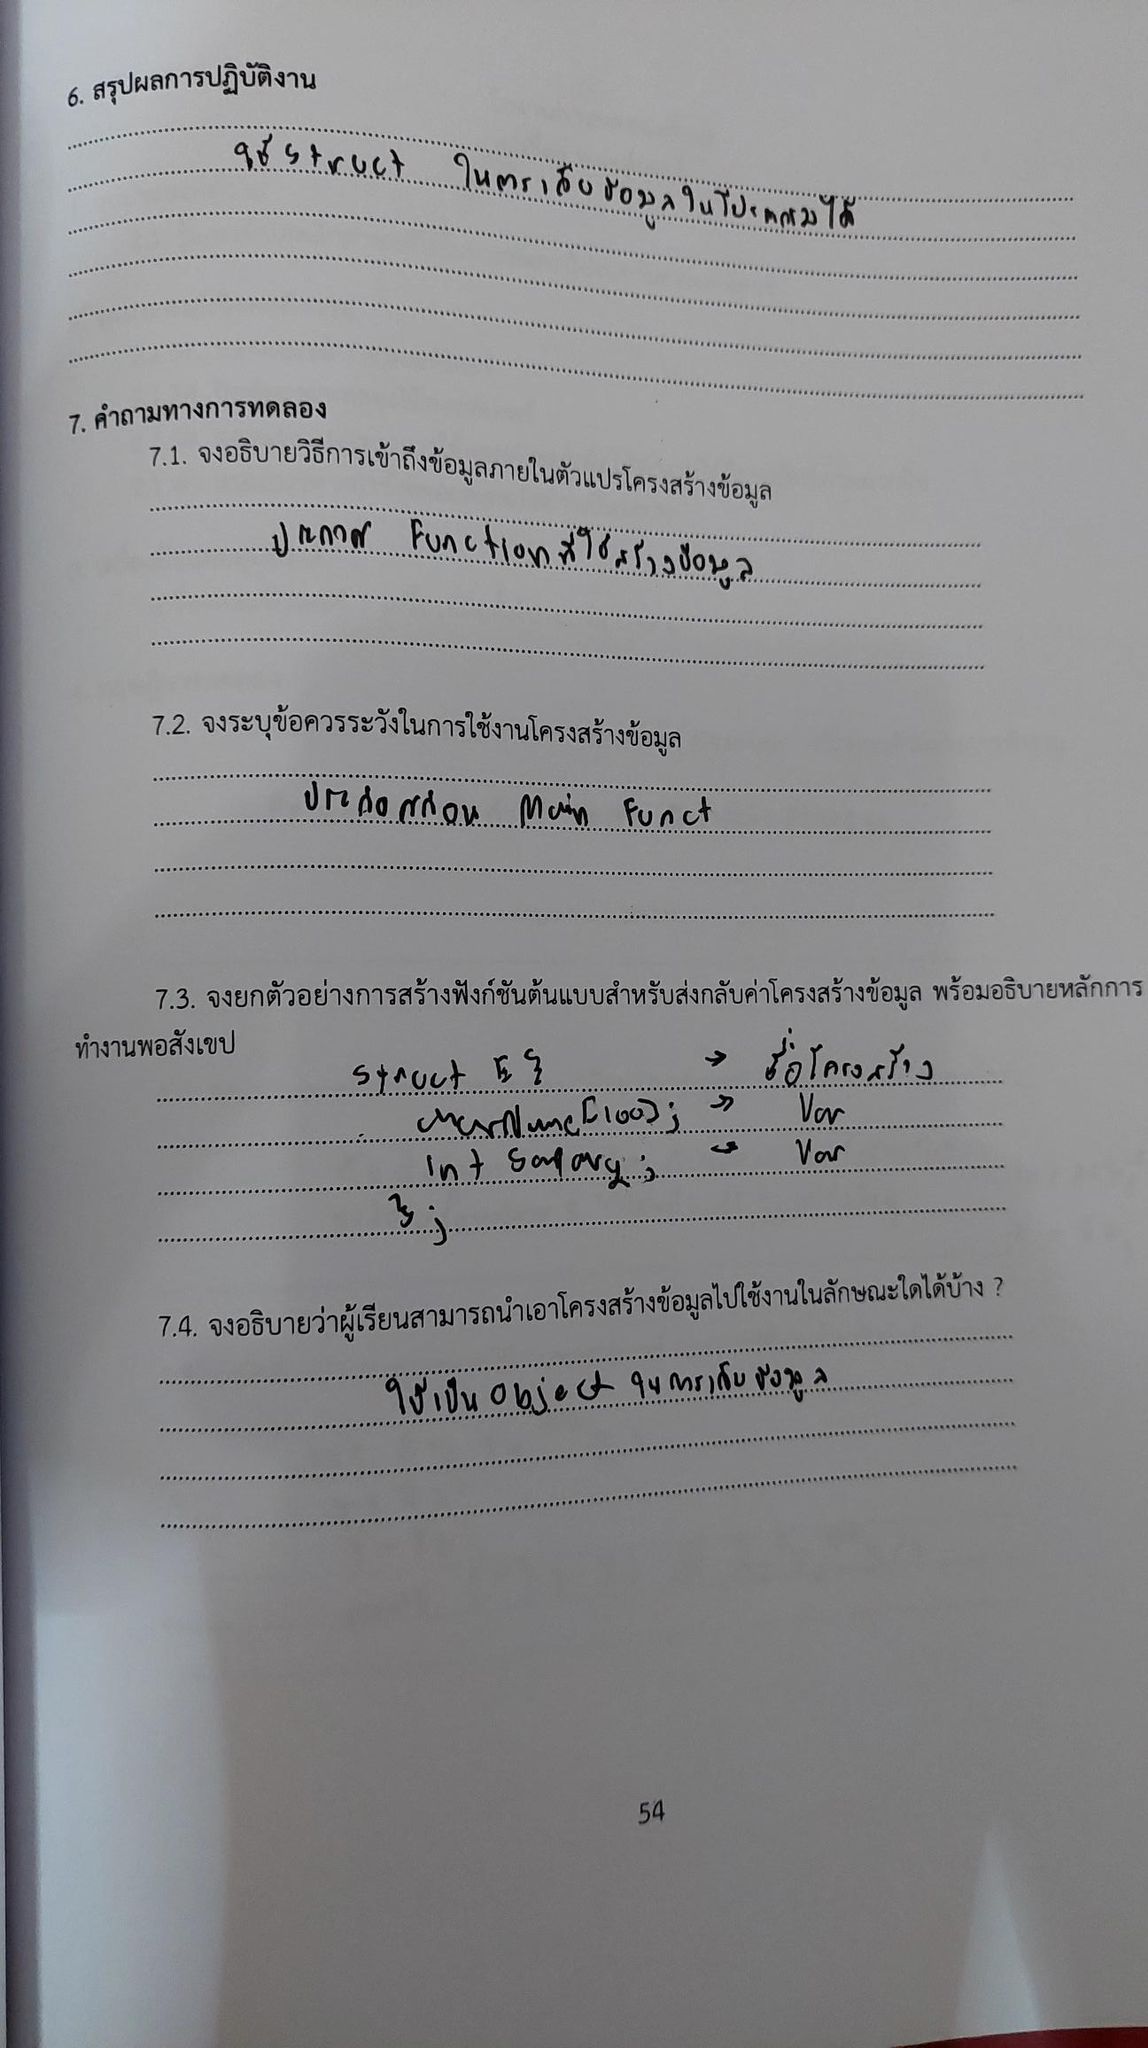 6. สรุปผลการปฏิบัติงาน
ใช้ struct ในการเก็บข้อมูลในโปรแกรมได้
7. คำถามทางการทดลอง
7.1. จงอธิบายวิธีการเข้าถึงข้อมูลภายในตัวแปรโครงสร้างข้อมูล
ประกาศ Functionที่ใช้สร้างข้อมูล
7.2. จงระบุข้อควรระวังในการใช้งานโครงสร้างข้อมูล
ประกาศก่อน Main Funct
7.3. จงยกตัวอย่างการสร้างฟังก์ชันต้นแบบสำหรับส่งกลับค่าโครงสร้างข้อมูล พร้อมอธิบายหลักการ
ทำงานพอสังเขป
Struct E { → ชื่อโครงสร้าง
char Name[100]; → Var
int Salary; → Var
};
7.4. จงอธิบายว่าผู้เรียนสามารถนำเอาโครงสร้างข้อมูลไปใช้งานในลักษณะใดได้บ้าง ?
ใช้เป็น object ในการเก็บข้อมูล
54